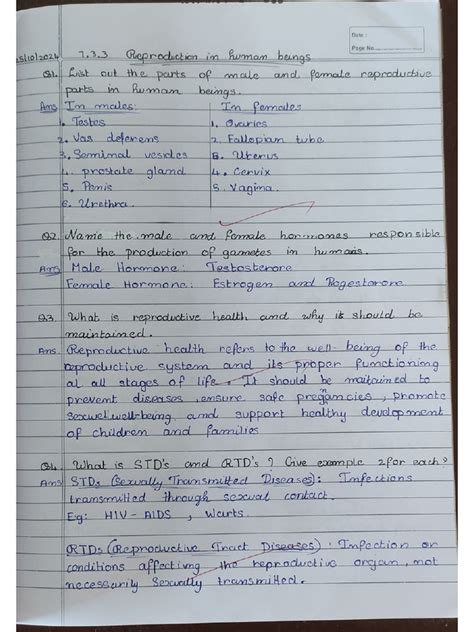 Date :
Page No.
15/10/2024 7.3.3 Reproduction in human beings
Q1. List out the parts of male and female reproductive
parts in human beings.
Ans In males: In females
1. Testes 1. Ovaries
2. Vas deferens 2. Fallopian tube
3. Seminal vesicles 3. Uterus
4. prostate gland 4. Cervix
5. Penis 5. Vagina.
6. Urethra.
Q2. Name the male and female hormones responsible
for the production of gametes in humans.
Ans Male Hormone: Testosterore
Female Hormone: Estrogen and Progestorore
Q3. What is reproductive health and why it should be
maintained.
Ans. Reproductive health refers to the well-being of the
reproductive system and its proper functioning
at all stages of life. It should be maitained to
prevent diseases, ensure safe pregnancies, promote
sexuel wellbeing and support healthy development
of children and families
Q4. What is STD's and RTD's? Give example 2for each?
Ans STDs (Sexually Transmitted Diseases): Infections
transmitted through sexual contact.
Eg: HIV- AIDS, Warts.
RTDs (Reproductive Tract Diseases): Infection or
conditions affecting the reproductive organ, not
necessarily Sexually transmitted.